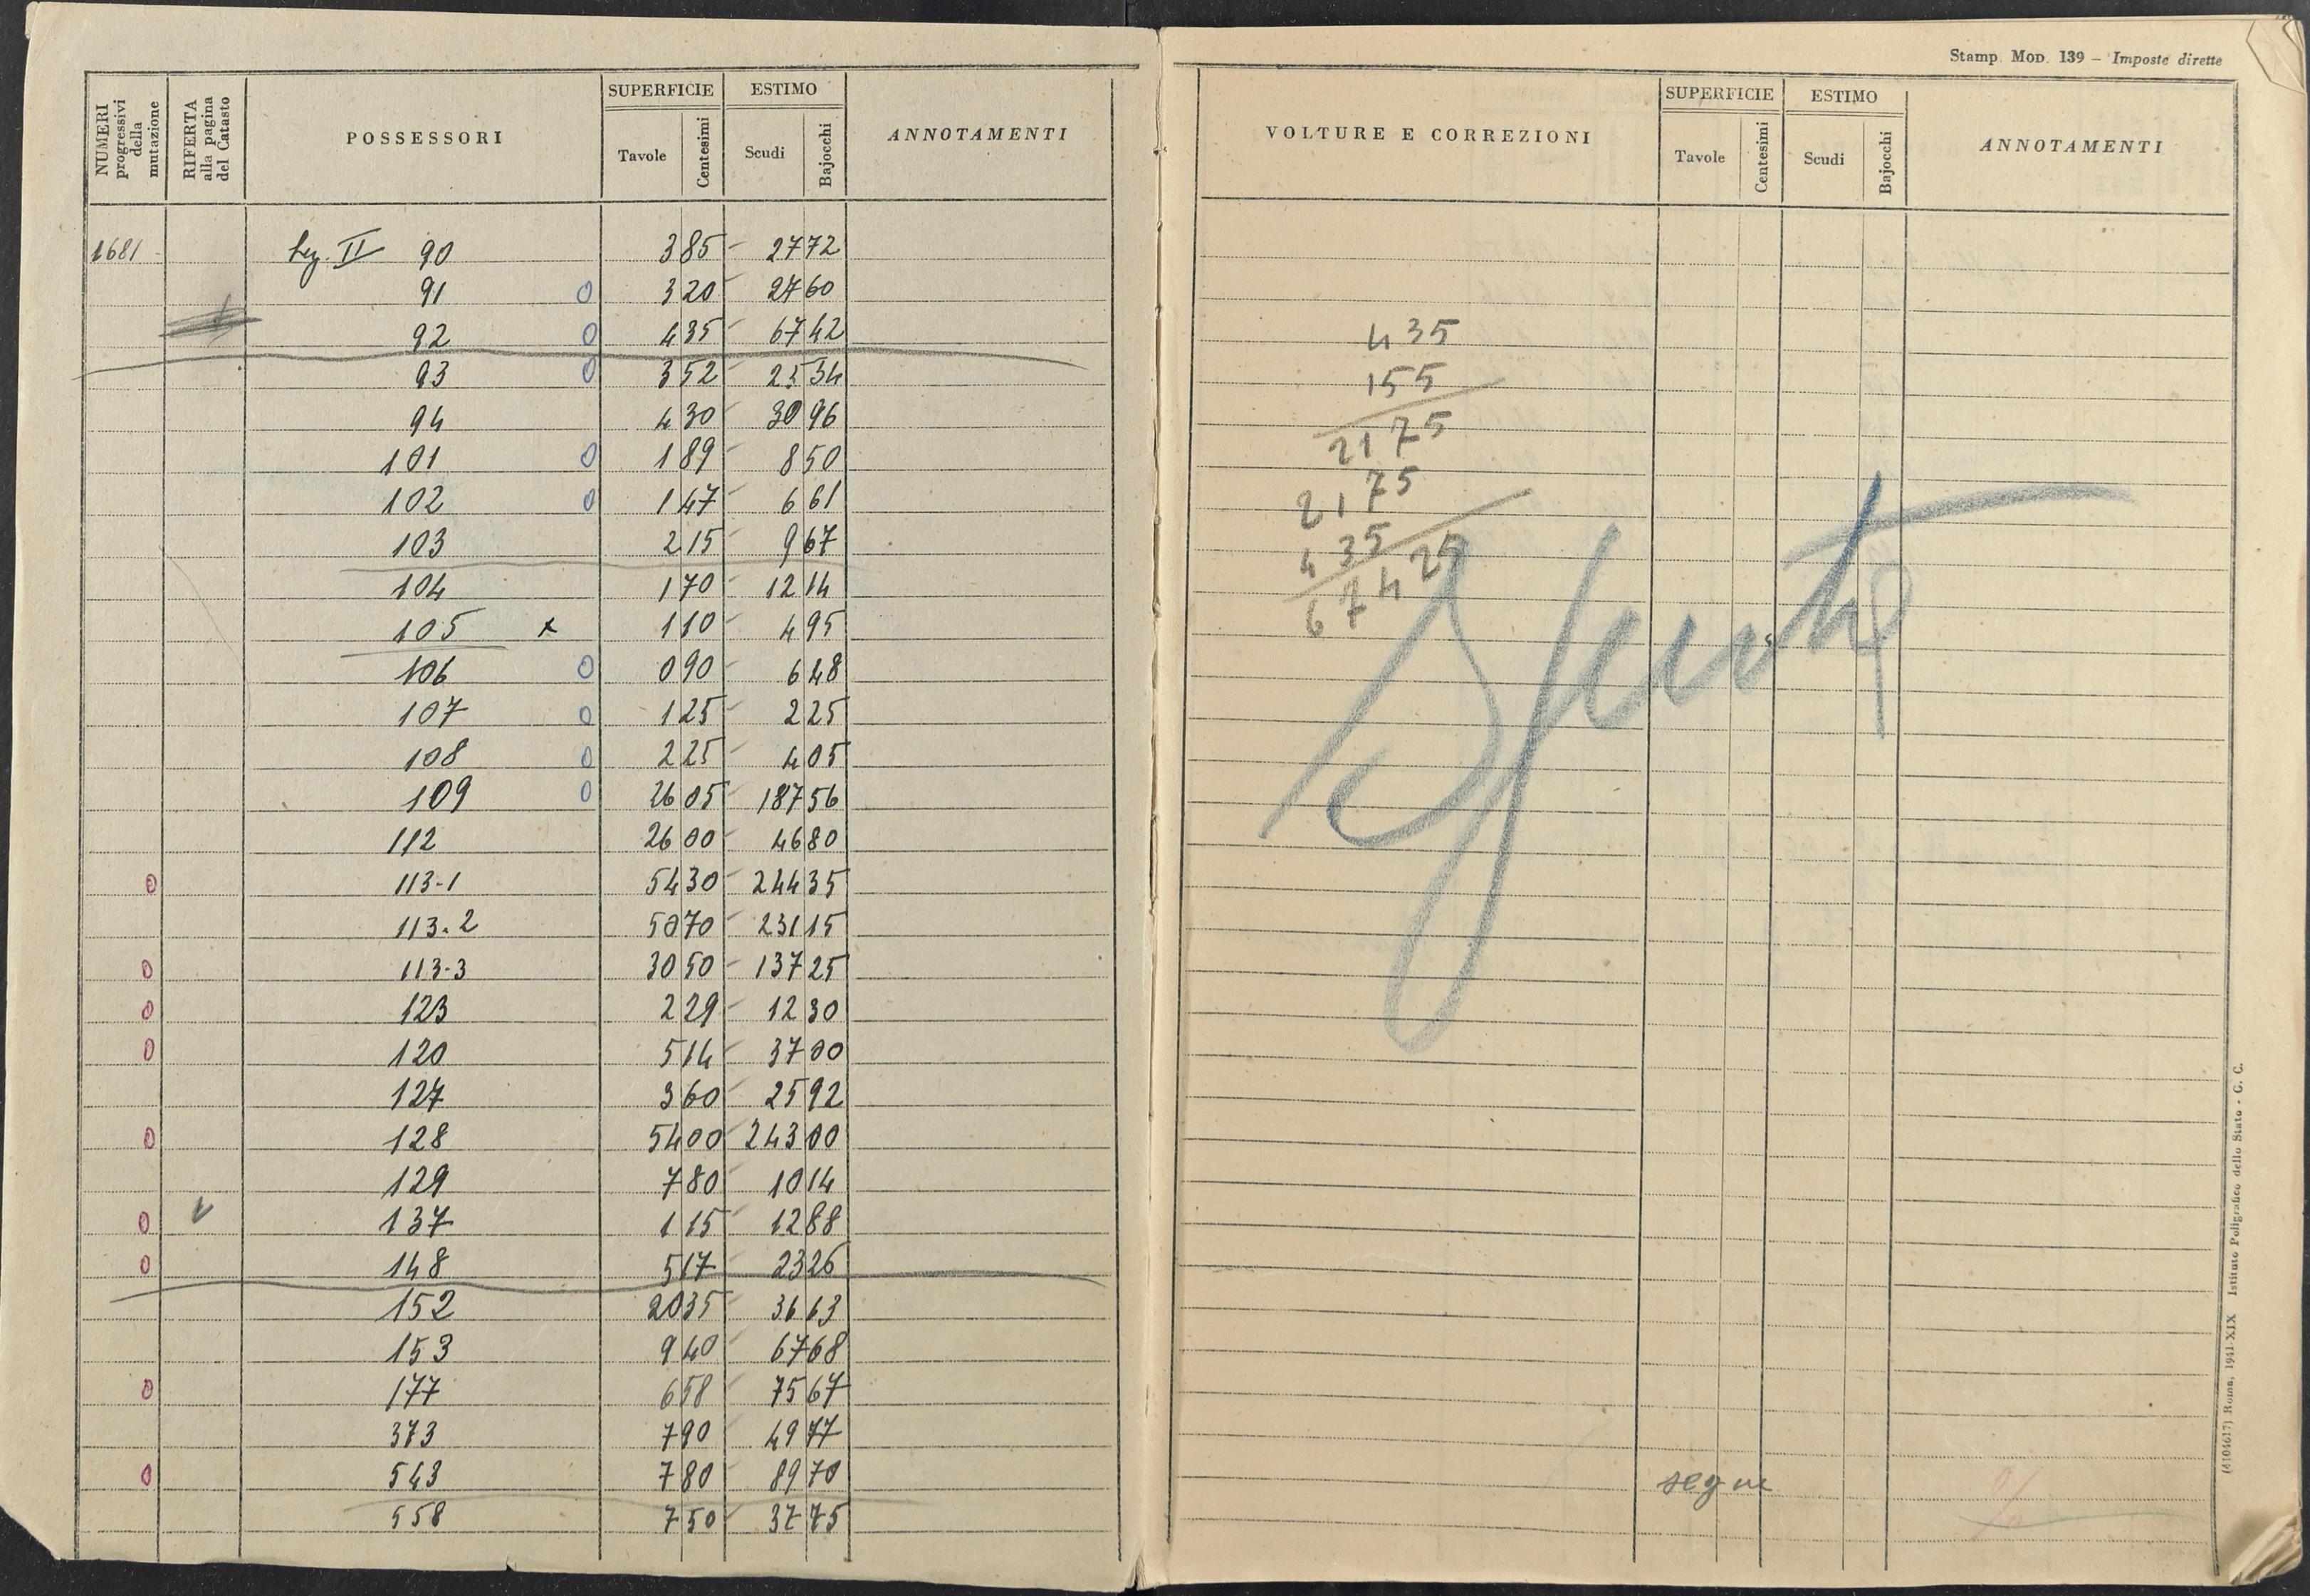 NUMERI progressivi della mutazione | RIFERTA alla pagina del Catasto | POSSESSORI | SUPERFICIE Tavole Centesimi | ESTIMO Scudi Bajocchi | ANNOTAMENTI
1681 Sez. II 90 3 85 - 27 72
91 0 3 20 - 27 60
92 0 4 35 - 67 42
93 0 3 52 - 25 34
94 4 30 - 30 96
101 0 1 89 - 8 50
102 0 1 47 - 6 61
103 2 15 - 9 67
104 1 70 - 12 14
105 x 1 10 - 4 95
106 0 0 90 - 6 48
107 0 1 25 - 2 25
108 0 2 25 - 4 05
109 0 26 05 - 187 56
112 26 00 - 46 80
0 113-1 54 30 - 244 35
113.2 50 70 - 231 15
0 113-3 30 50 - 137 25
0 123 2 29 - 12 30
0 120 5 14 - 37 00
127 3 60 - 25 92
0 128 54 00 - 243 00
129 7 80 - 10 14
0 v 137 1 15 - 12 88
0 148 5 17 - 23 26
152 20 35 - 36 63
153 9 40 - 67 68
0 177 6 58 - 75 67
373 7 90 - 49 77
0 543 7 80 - 89 70
558 7 50 - 37 75
Stamp. Mod. 139 – Imposte dirette
VOLTURE E CORREZIONI | SUPERFICIE Tavole Centesimi | ESTIMO Scudi Bajocchi | ANNOTAMENTI
435
155
2175
2175
435
67425
segue
(4104617) Roma, 1941-XIX Istituto Poligrafico dello Stato - G. C.